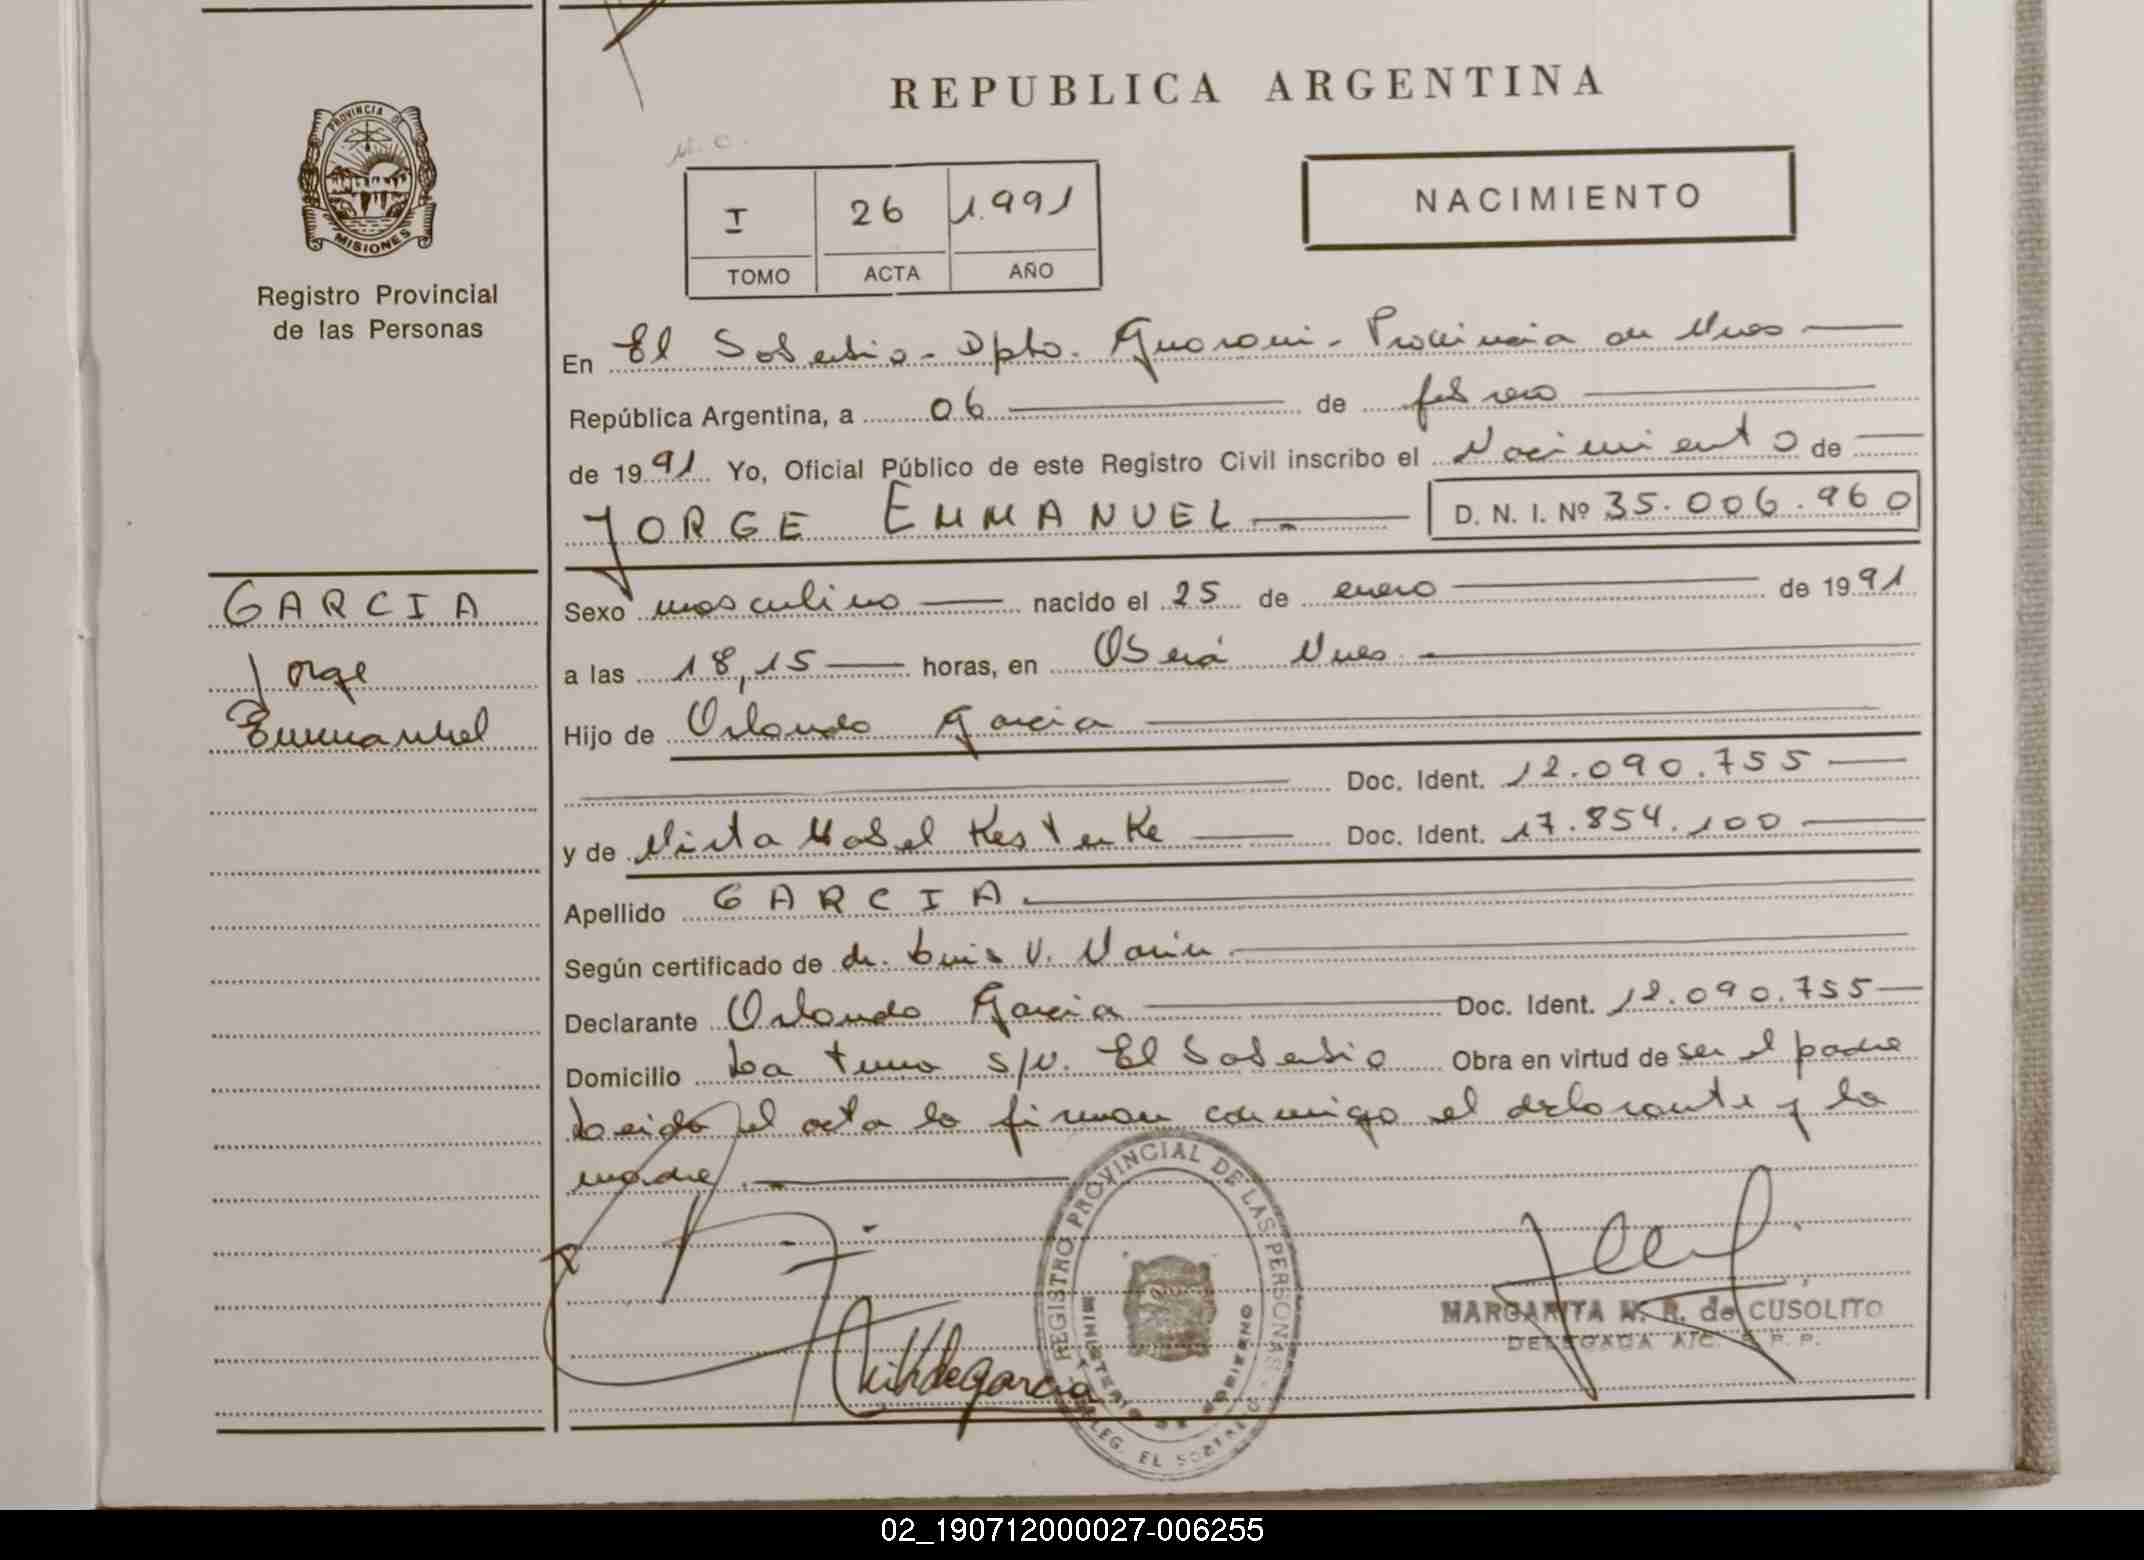 REPUBLICA ARGENTINA
PROVINCIA D
MISIONES
Registro Provincial
de las Personas
I 26 1.991
TOMO ACTA AÑO
NACIMIENTO
En El Soberbio - Dpto. Guarani - Provincia de Mnes
República Argentina, a 06 de febrero
de 1991 Yo, Oficial Público de este Registro Civil inscribo el Nacimiento de
JORGE EMMANUEL D. N. I. Nº 35.006.960
GARCIA
Jorge
Emmanuel
Sexo masculino nacido el 25 de enero de 1991
a las 18,15 horas, en Oberá Mnes
Hijo de Orlando Garcia
Doc. Ident. 12.090.755
y de Mirta Mabel Kesterke Doc. Ident. 17.854.100
Apellido GARCIA
Según certificado de dr. Luis V. Marin
Declarante Orlando Garcia Doc. Ident. 12.090.755
Domicilio La s/n. El Soberbio Obra en virtud de ser el padre
Leida el acta la firman conmigo el declarante y la
madre
REGISTRO PROVINCIAL DE LAS PERSONAS
MINISTERIO DE GOBIERNO
DELEG. EL SOBERBIO
MARGARITA N. R. de CUSOLITO
DELEGADA A/C. R. P. P.
02_190712000027-006255